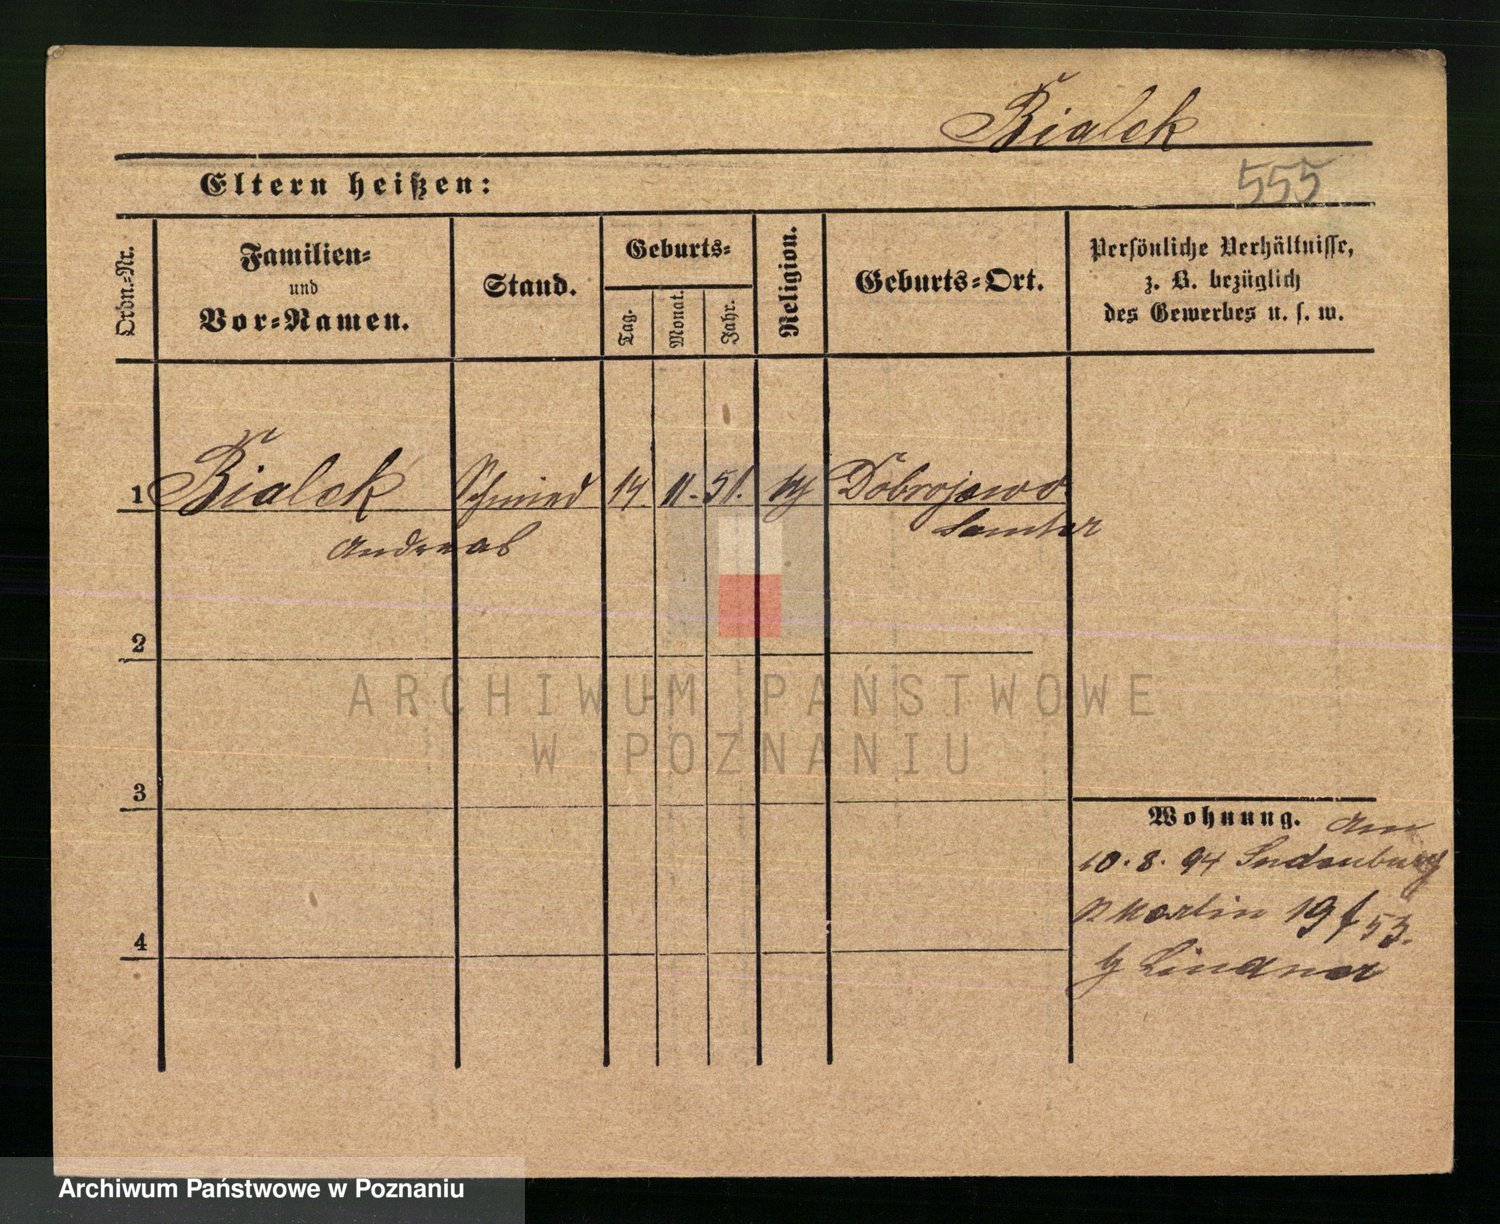 Bialek
Eltern heißen:
555
Ordn.-Nr.
Familien-
und
Vor-Namen.
Stand.
Geburts-
Tag.
Monat.
Jahr.
Religion.
Geburts-Ort.
Persönliche Verhältnisse,
z. B. bezüglich
des Gewerbes u. s. w.
1 Bialek Schmied 14. 11. 51. Dobrojewo
Andreas Samter
2
ARCHIWUM PAŃSTWOWE
W POZNANIU
3
Wohnung. Am
10. 8. 94 Sudenburg
Martin 19 f 53.
Lindner
4
Archiwum Państwowe w Poznaniu